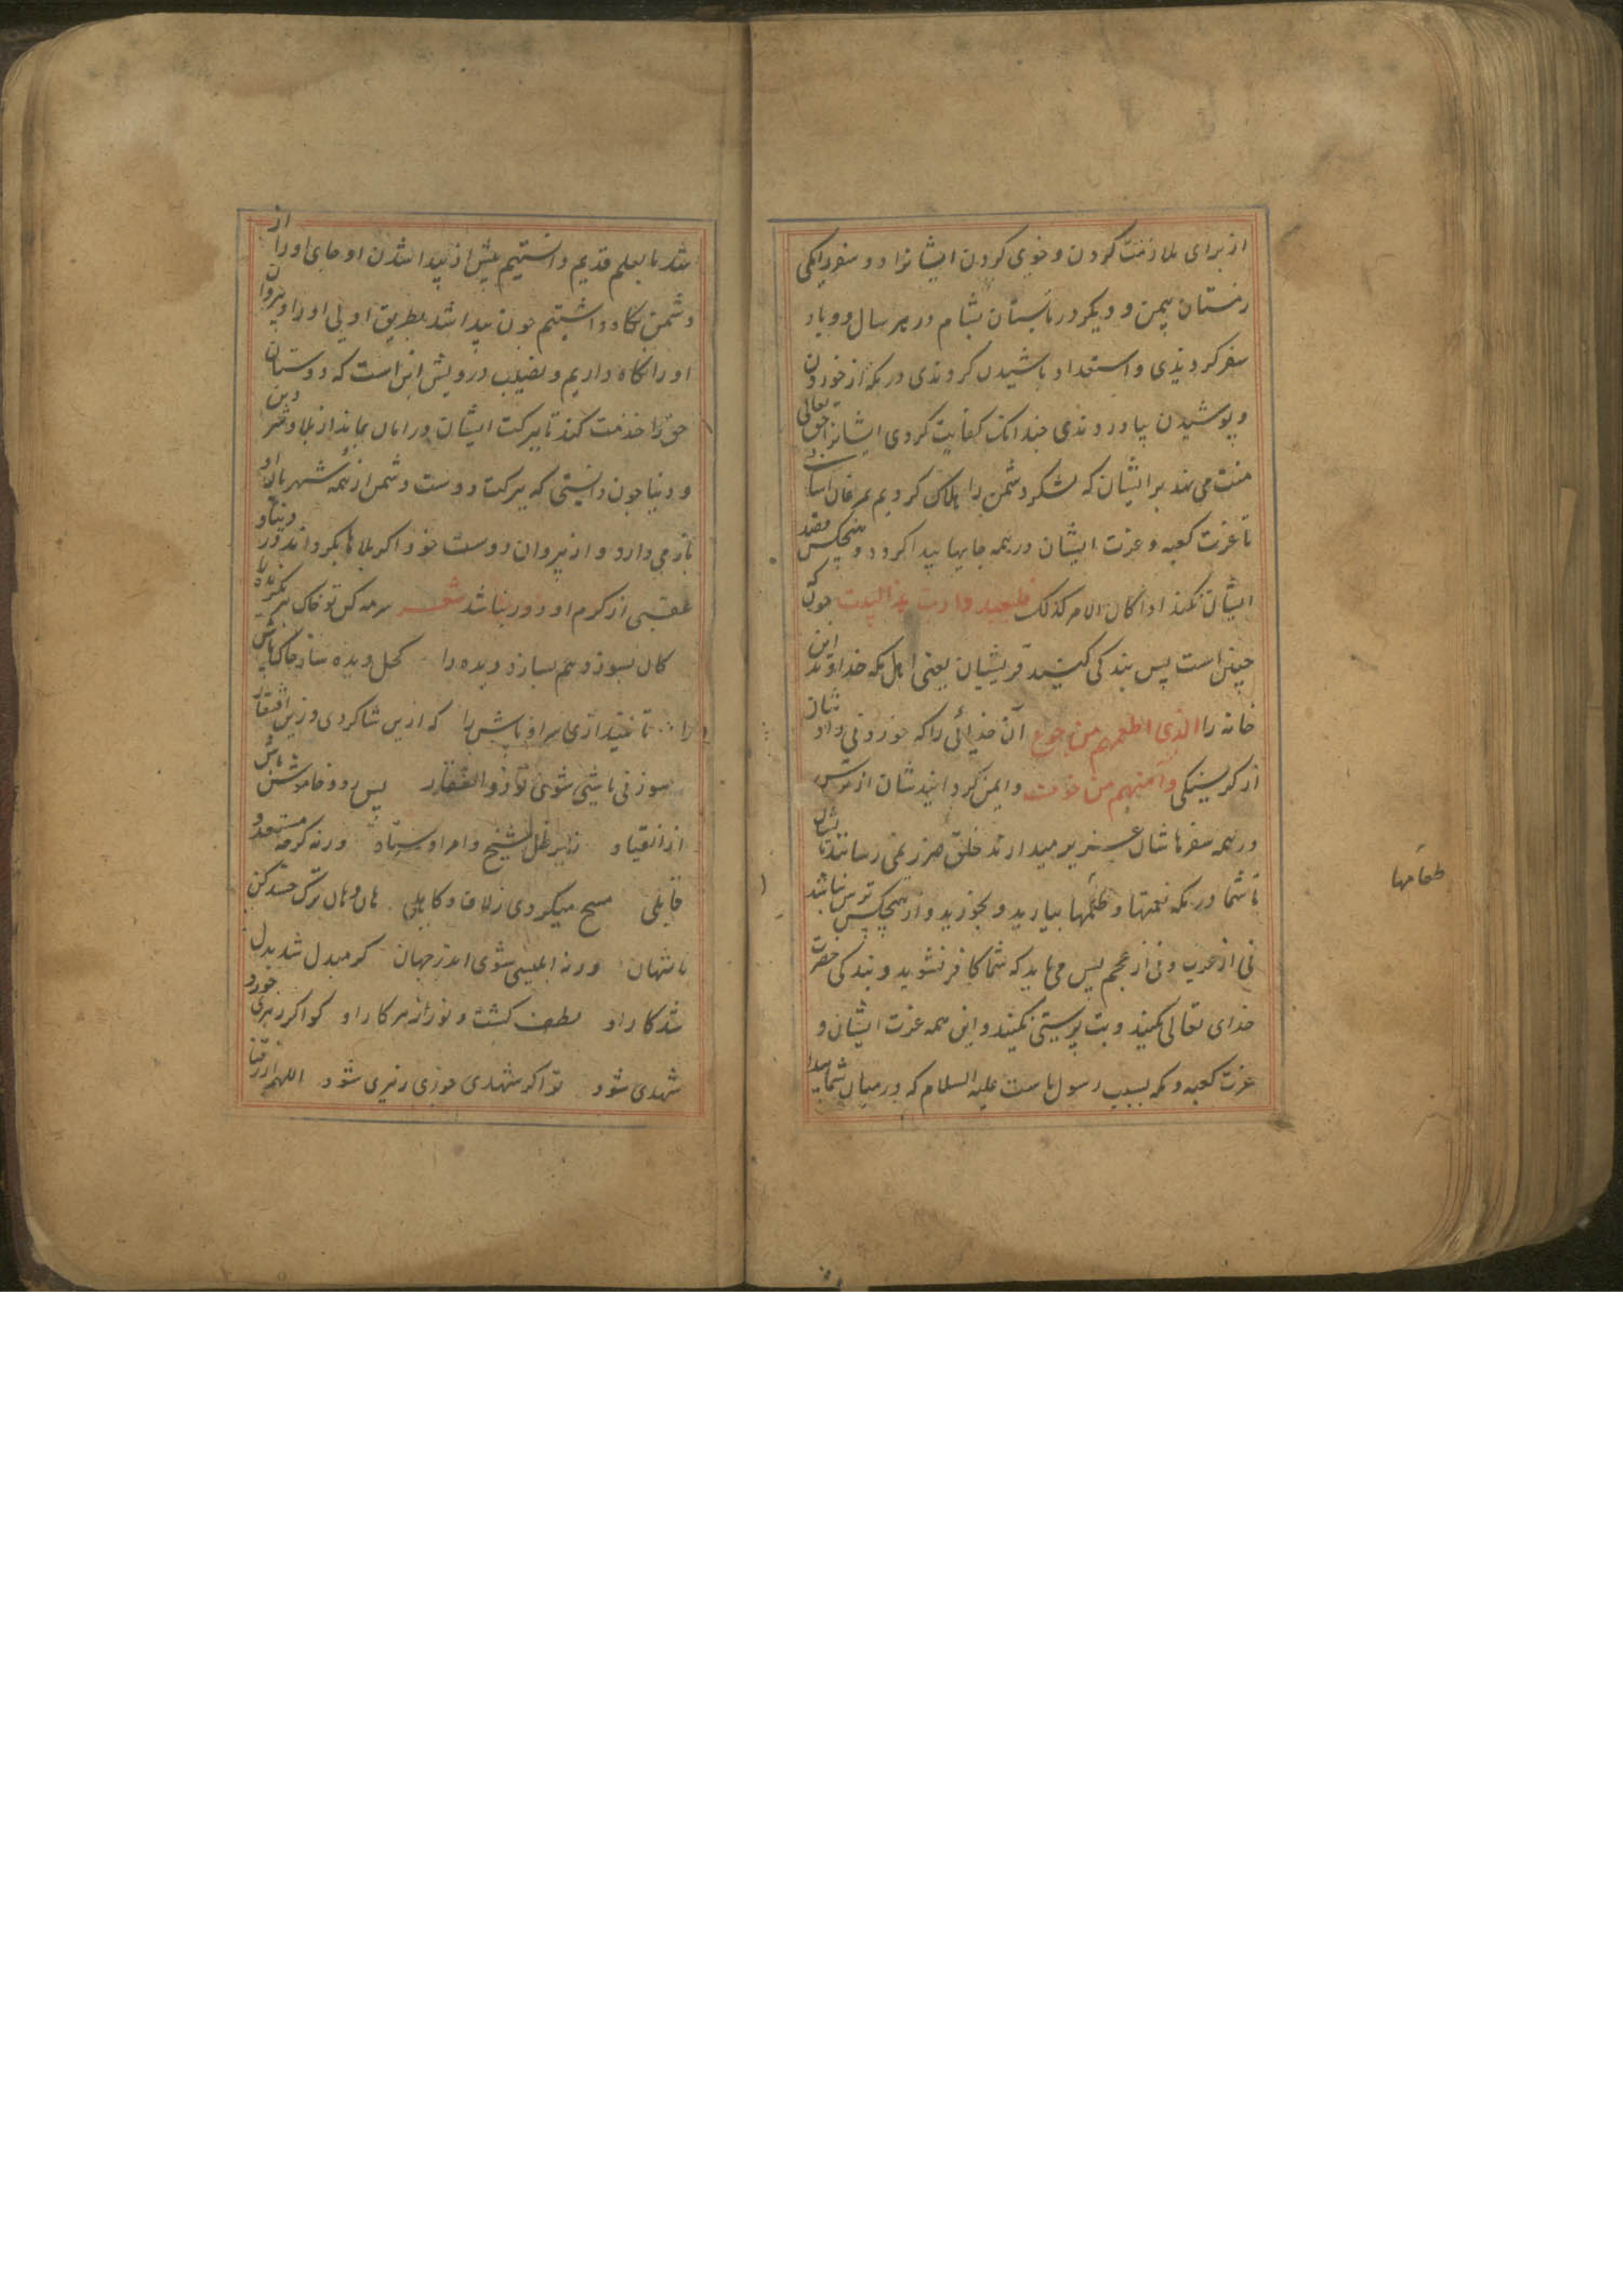 از برای ملازمت کردن و خوی کردن ایشانرا دو سفر یکی
زمستان بیمن و دیگر در تابستان بشام در هر سال دو بار
سفر کردندی و استعداد باشیدن کردندی در مکه از خوردن
و پوشیدن بیاوردندی چندانک کفایت کردی ایشانرا حق تعالی
منت می نهد بر ایشان که لشکر دشمن را هلاک کردیم بمرغان
تا عزت کعبه و عزت ایشان در همه جایها پیدا کردد و هیچکس قصد
ایشان نکند اذا کان الامر کذلک فلیعبدوا رب هذا البیت چون
چنین است پس بندکی کنید قریشیان یعنی اهل مکه خداوند این
خانه را الذی اطعمهم من جوع آن خدائی را که خوردنی داد شان
از کرسنکی و آمنهم من خوف و ایمن کردانید شان از ترس
در همه سفرها شان عزیز میدارند خلق ضرر نمی رسانند
تا شما در مکه نعمتها و طعمها بیارید و بخورید و از هیچکس ترس نباشد
نی از عرب و نی از عجم پس می باید که شما کافر نشوید و بندکی حضرت
خدای تعالی کنید و بت پرستی نکنید و این همه عزت ایشان و
عزت کعبه و مکه بسبب رسول ماست علیه السلام که در میان شما پیدا
طعامها
شد ما بعلم قدیم دانستیم پیش از پیدا شدن او جای او را از
دشمن نکاه داشتیم چون پیدا شد بطریق اولی او را و پیروان
او را نکاه داریم و نصیب درویش این است که دوستان
حق را خدمت کند تا ببرکت ایشان در امان بماند از بلا دین
و دنیا چون دانستی که ببرکت دوست دشمن از همه شهر باز او
باز می دارد و از پیروان دوست خود اکر بلاها بکرداند در دنیا و
عقبی از کرم او دور نباشد شعر سرمه کن تو خاک هر بکزیده را
کان بسوزد هم بسازد دیده را کحل دیده ساز خاک پاش
را تا نیندازی سر اوباش را که ازین شاکردی و زین افتقار
سوزنی باشی شوی تو ذوالفقار پس رو و خاموش باش
از انقیاد زیر ظل شیخ و امر اوستاد ورنه کرچه مستعد و
قابلی مسخ میکردی زلاف و کاهلی هان و هان ترک حسد کن
با شهان ورنه ابلیسی شوی اندر جهان کر مبدل شد بدل
شد کار او لطف کشت و نور از هر کار او کو اکر زهری خورد
شهدی شود تو اکر شهدی خوری زهری شود اللهم ارزقنا